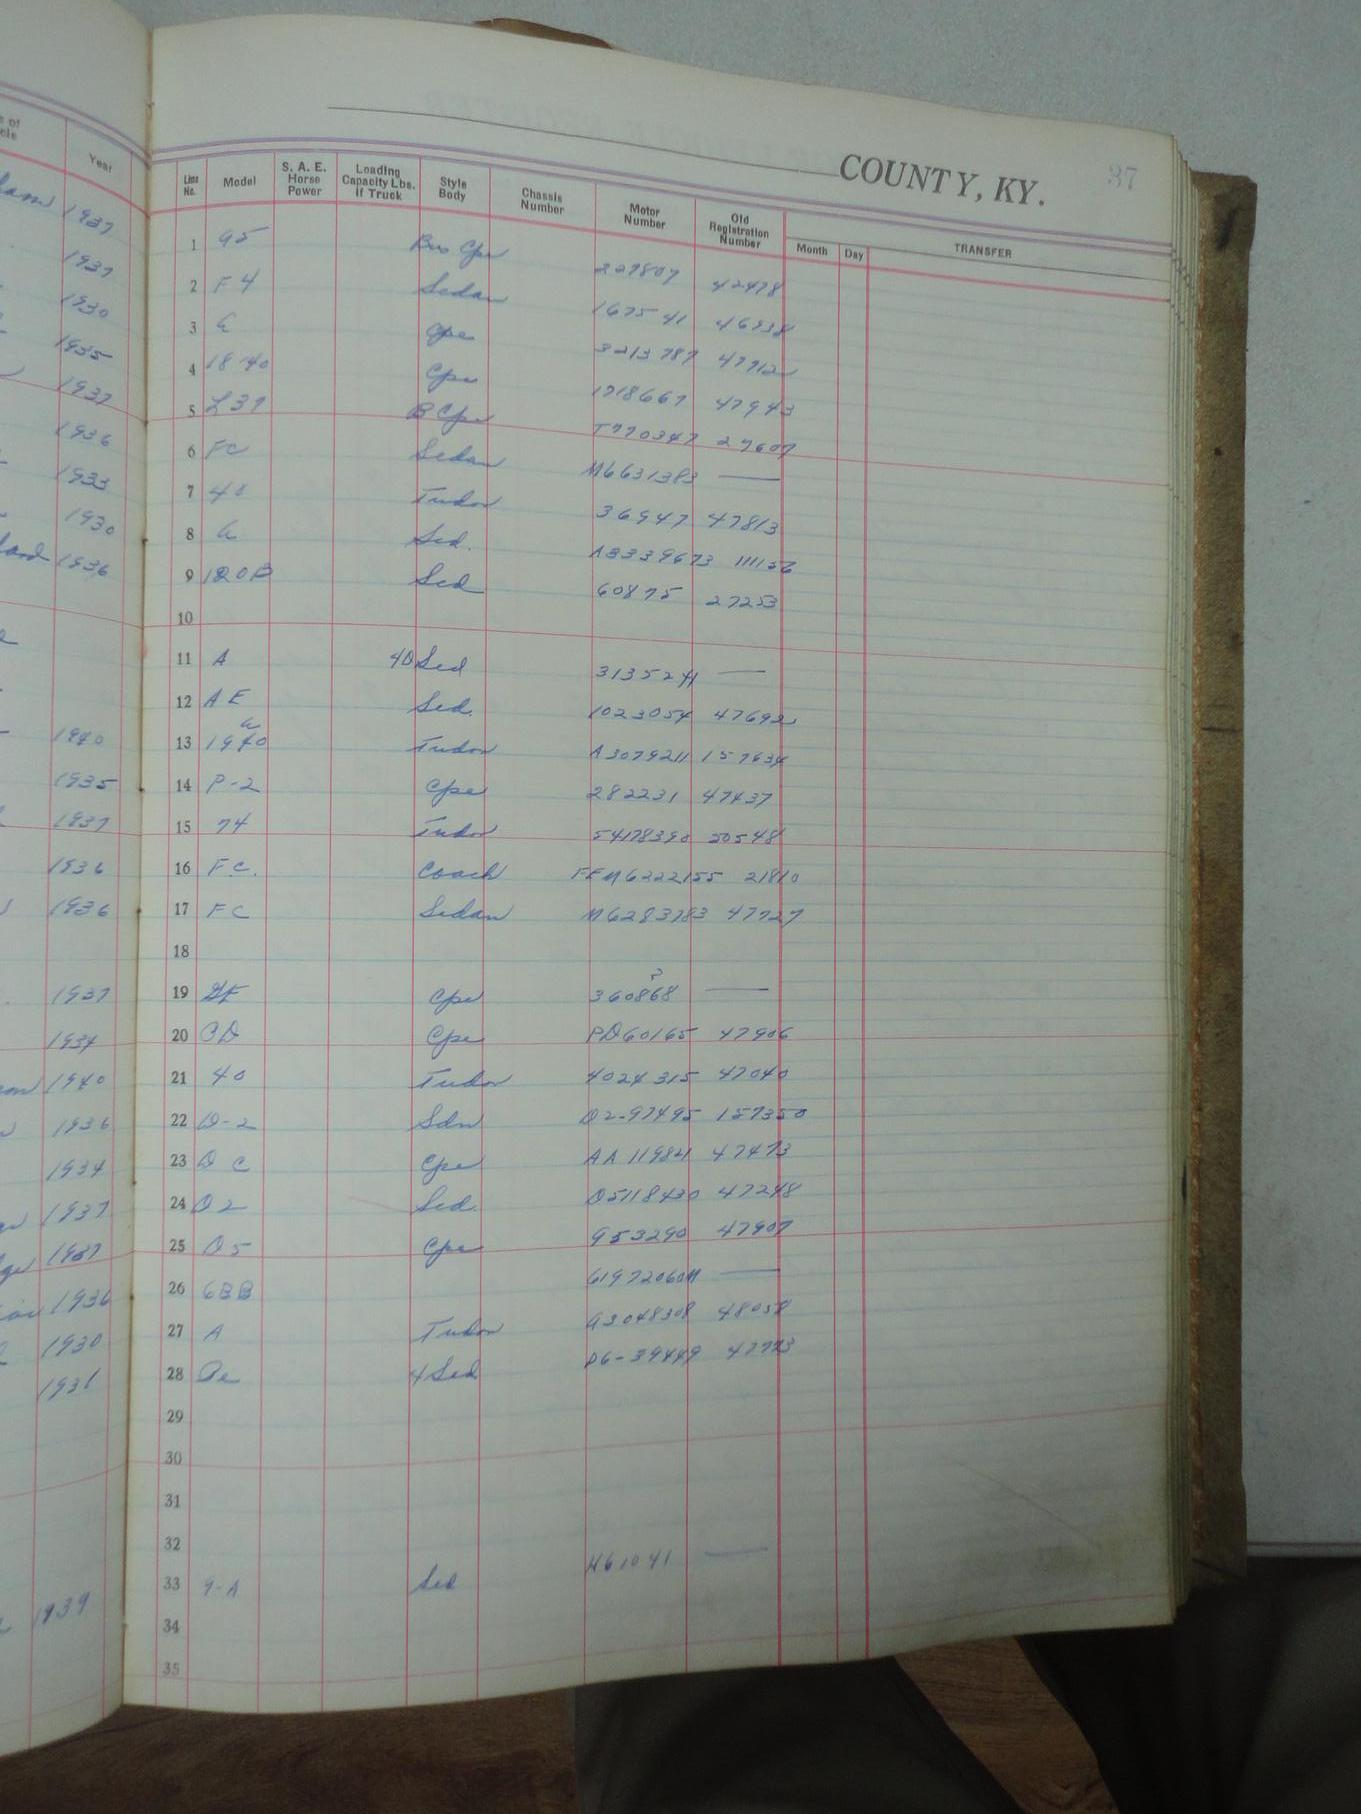 COUNTY, KY. 37
Year
Line No. Model S. A. E. Horse Power Loading Capacity Lbs. if Truck Style Body Chassis Number Motor Number Old Registration Number Month Day TRANSFER
1937 1 95 Bus Cpe 227807 42478
1937 2 F4 Sedan 167541 46938
1930 3 A Cpe 3213787 47712
1935 4 18 40 Cpe 1718667 47943
1937 5 L37 B Cpe T770347 27607
1936 6 FC Sedan M6631383 —
1933 7 40 Tudor 36947 47813
1930 8 A Sed. A3339673 111156
1936 9 120B Sed 60875 27253
10
11 A 4D Sed 3135241 —
12 AE Sed. 1023054 47692
1940 13 1940 Tudor A3079211 157634
1935 14 P-2 Cpe 282231 47437
1937 15 74 Tudor 54178390 20548
1936 16 F.C. Coach FFM6222155 21810
1936 17 FC Sedan M6283783 47727
18
1937 19 Cpe 360868 —
1934 20 Cpe PD60165 47906
1940 21 40 Tudor 4024315 47040
1936 22 D-2 Sdn D2-97495 157350
1934 23 D C Cpe AA 11984 47473
1937 24 D2 Sed. D5118430 47248
1937 25 D5 Cpe 953290 47907
1936 26 6BB 61972060M —
1930 27 A Tudor A3048308 48058
1931 28 4 Sed D6-39449 47773
29
30
31
32
1939 33 9-A Sed H61041 —
34
35